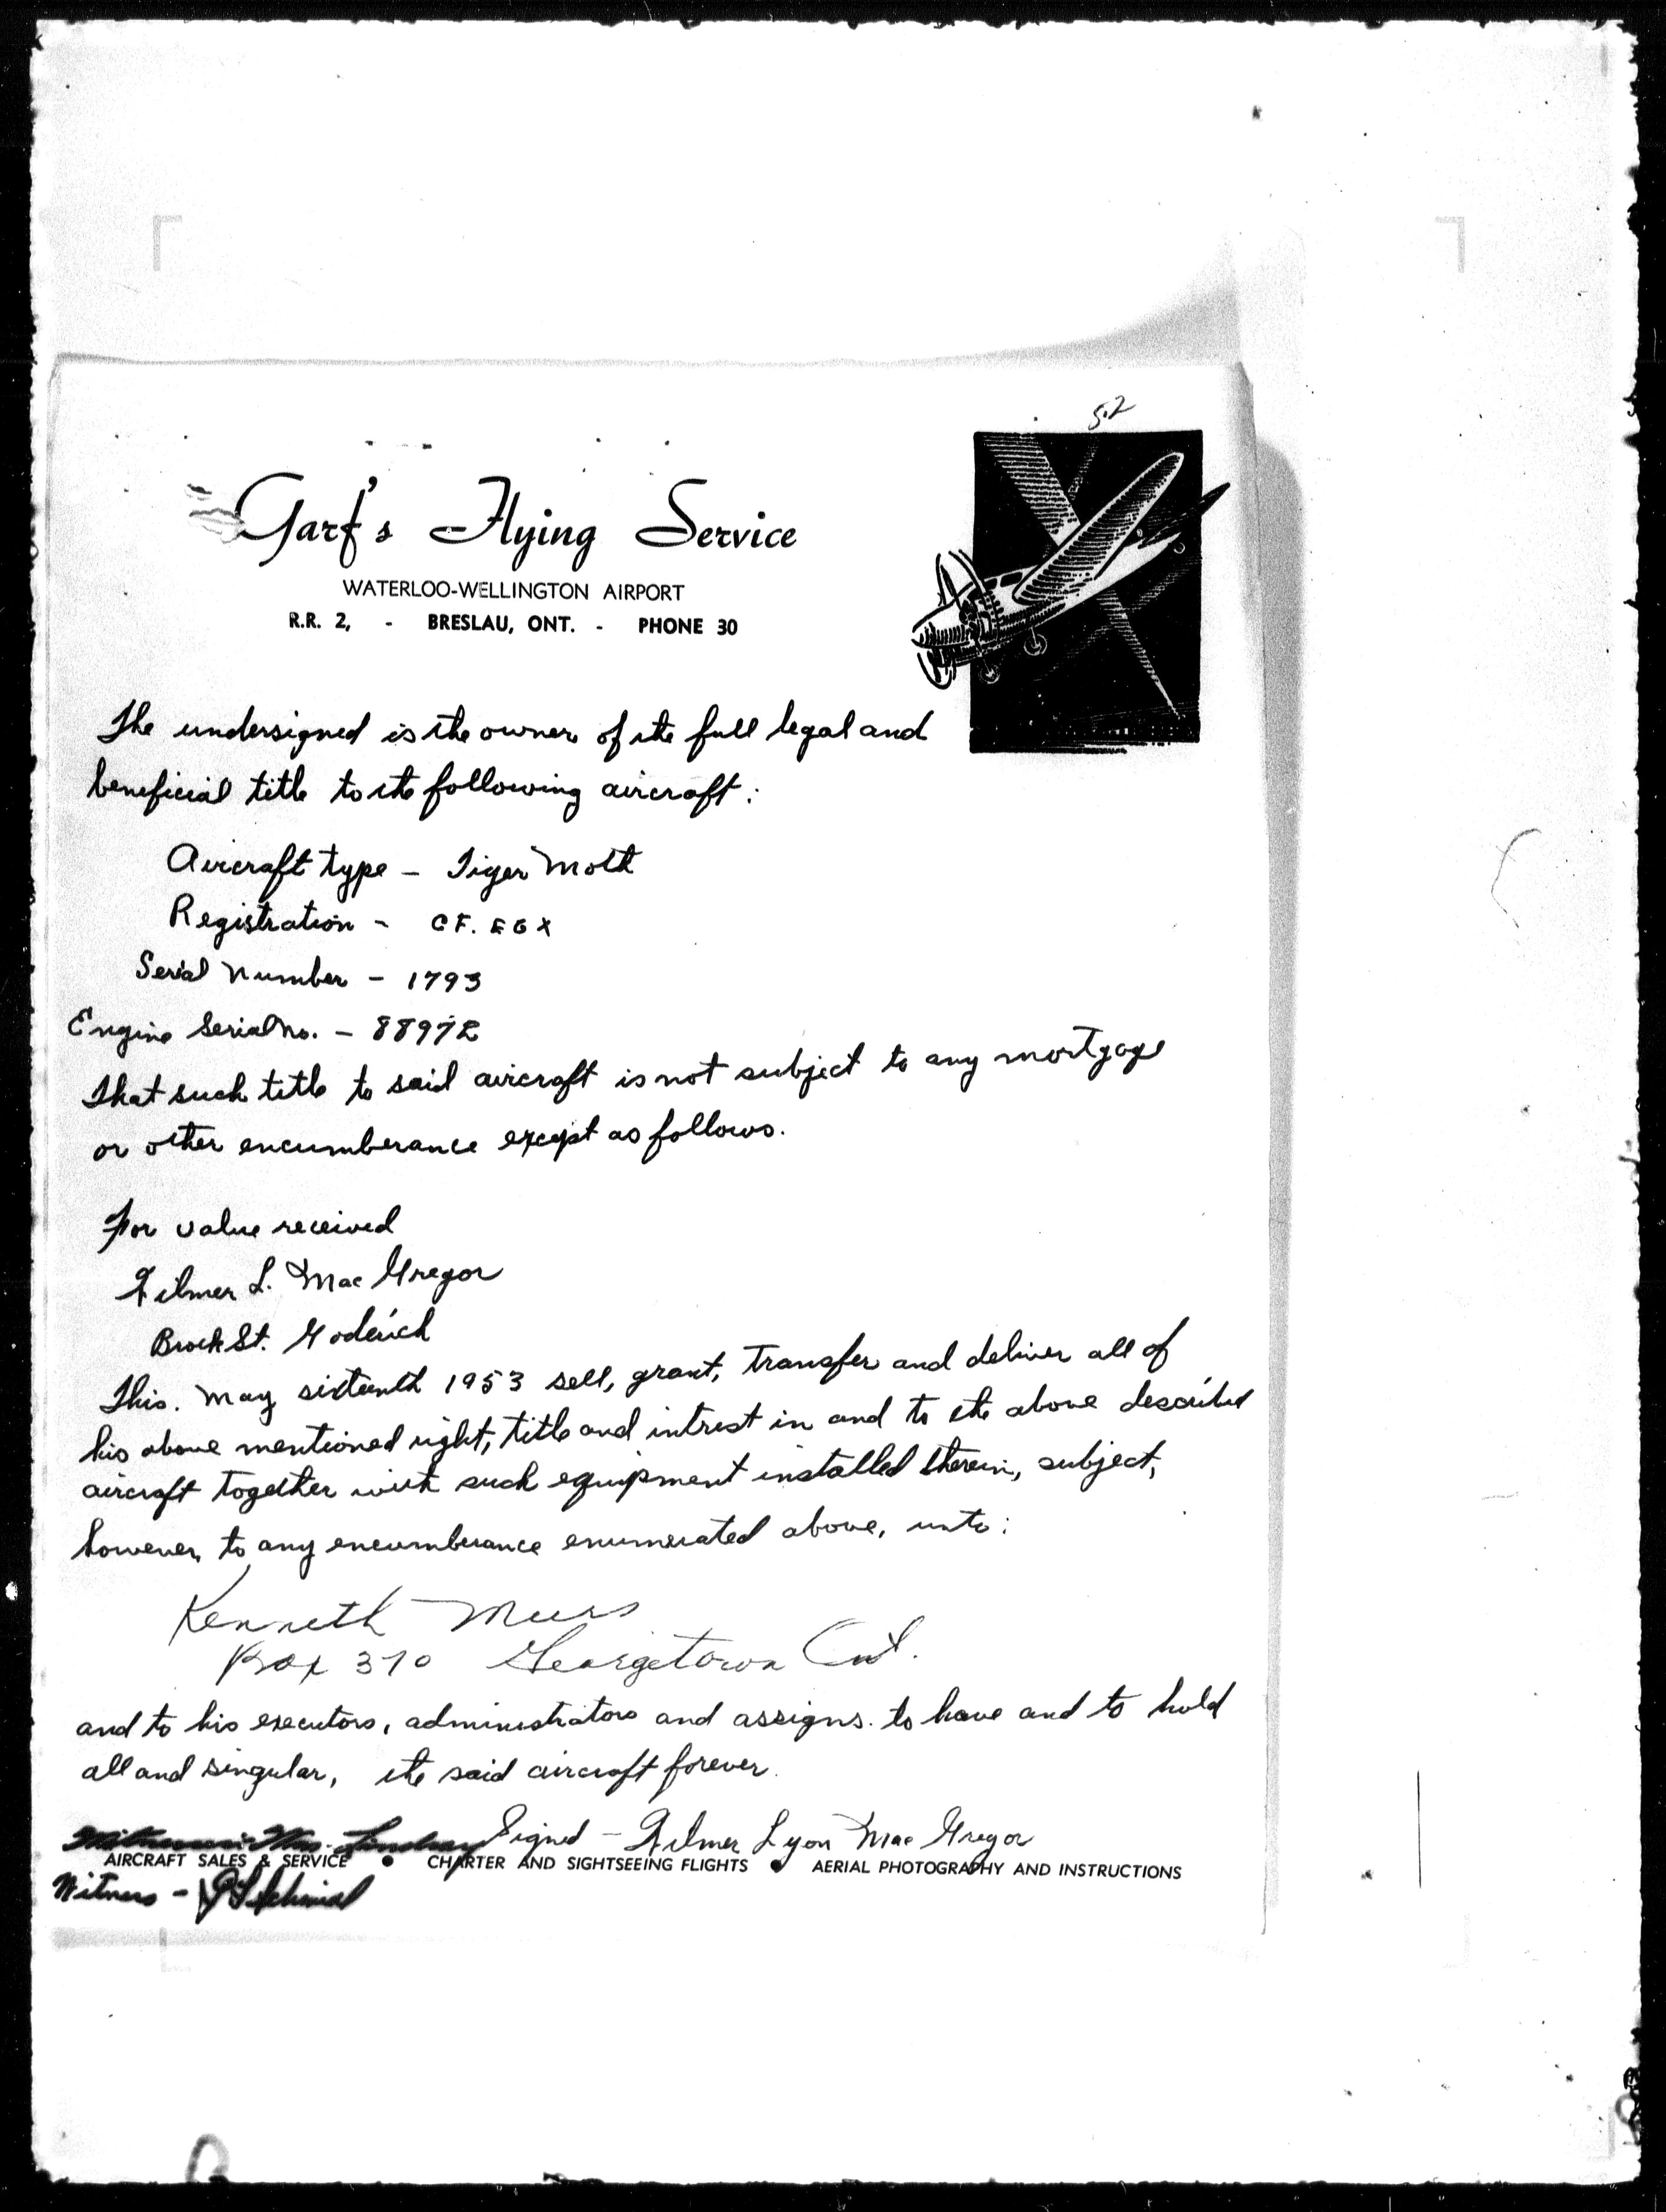 52
Garf's Flying Service
WATERLOO-WELLINGTON AIRPORT
R.R. 2, - BRESLAU, ONT. - PHONE 30
The undersigned is the owner of the full legal and
beneficial title to the following aircraft:
Aircraft type - Tiger Moth
Registration - CF. EGX
Serial Number - 1793
Engine Serial No. - 88972
That such title to said aircraft is not subject to any mortgage
or other encumberance except as follows.
For value received
Filmer L. MacGregor
Brock St. Goderich
This. May sixteenth 1953 sell, grant, transfer and deliver all of
his above mentioned right, title and intrest in and to the above described
aircraft together with such equipment installed therein, subject,
however, to any encumberance enumerated above, unto:
Kenneth
Box 370 Georgetown Ont.
and to his executors, administrators and assigns. to have and to hold
all and singular, the said aircraft forever.
Signed - Filmer Lyon MacGregor
AIRCRAFT SALES & SERVICE • CHARTER AND SIGHTSEEING FLIGHTS • AERIAL PHOTOGRAPHY AND INSTRUCTIONS
Witness -